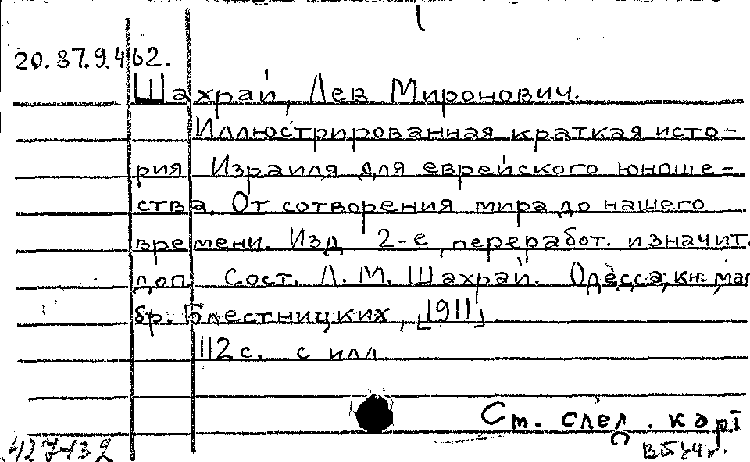 20.37.9.462.
Шахрай, Лев Миронович.
Иллюстрированная краткая исто-
рия Израиля для еврейского юноше-
ства. От сотворения мира до нашего
времени. Изд. 2-е, переработ. и значит.
доп. Сост. Л. М. Шахрай. Одесса, кн. маг.
бр. Блестницких, [1911]
112 с. с илл.
См. след. карт